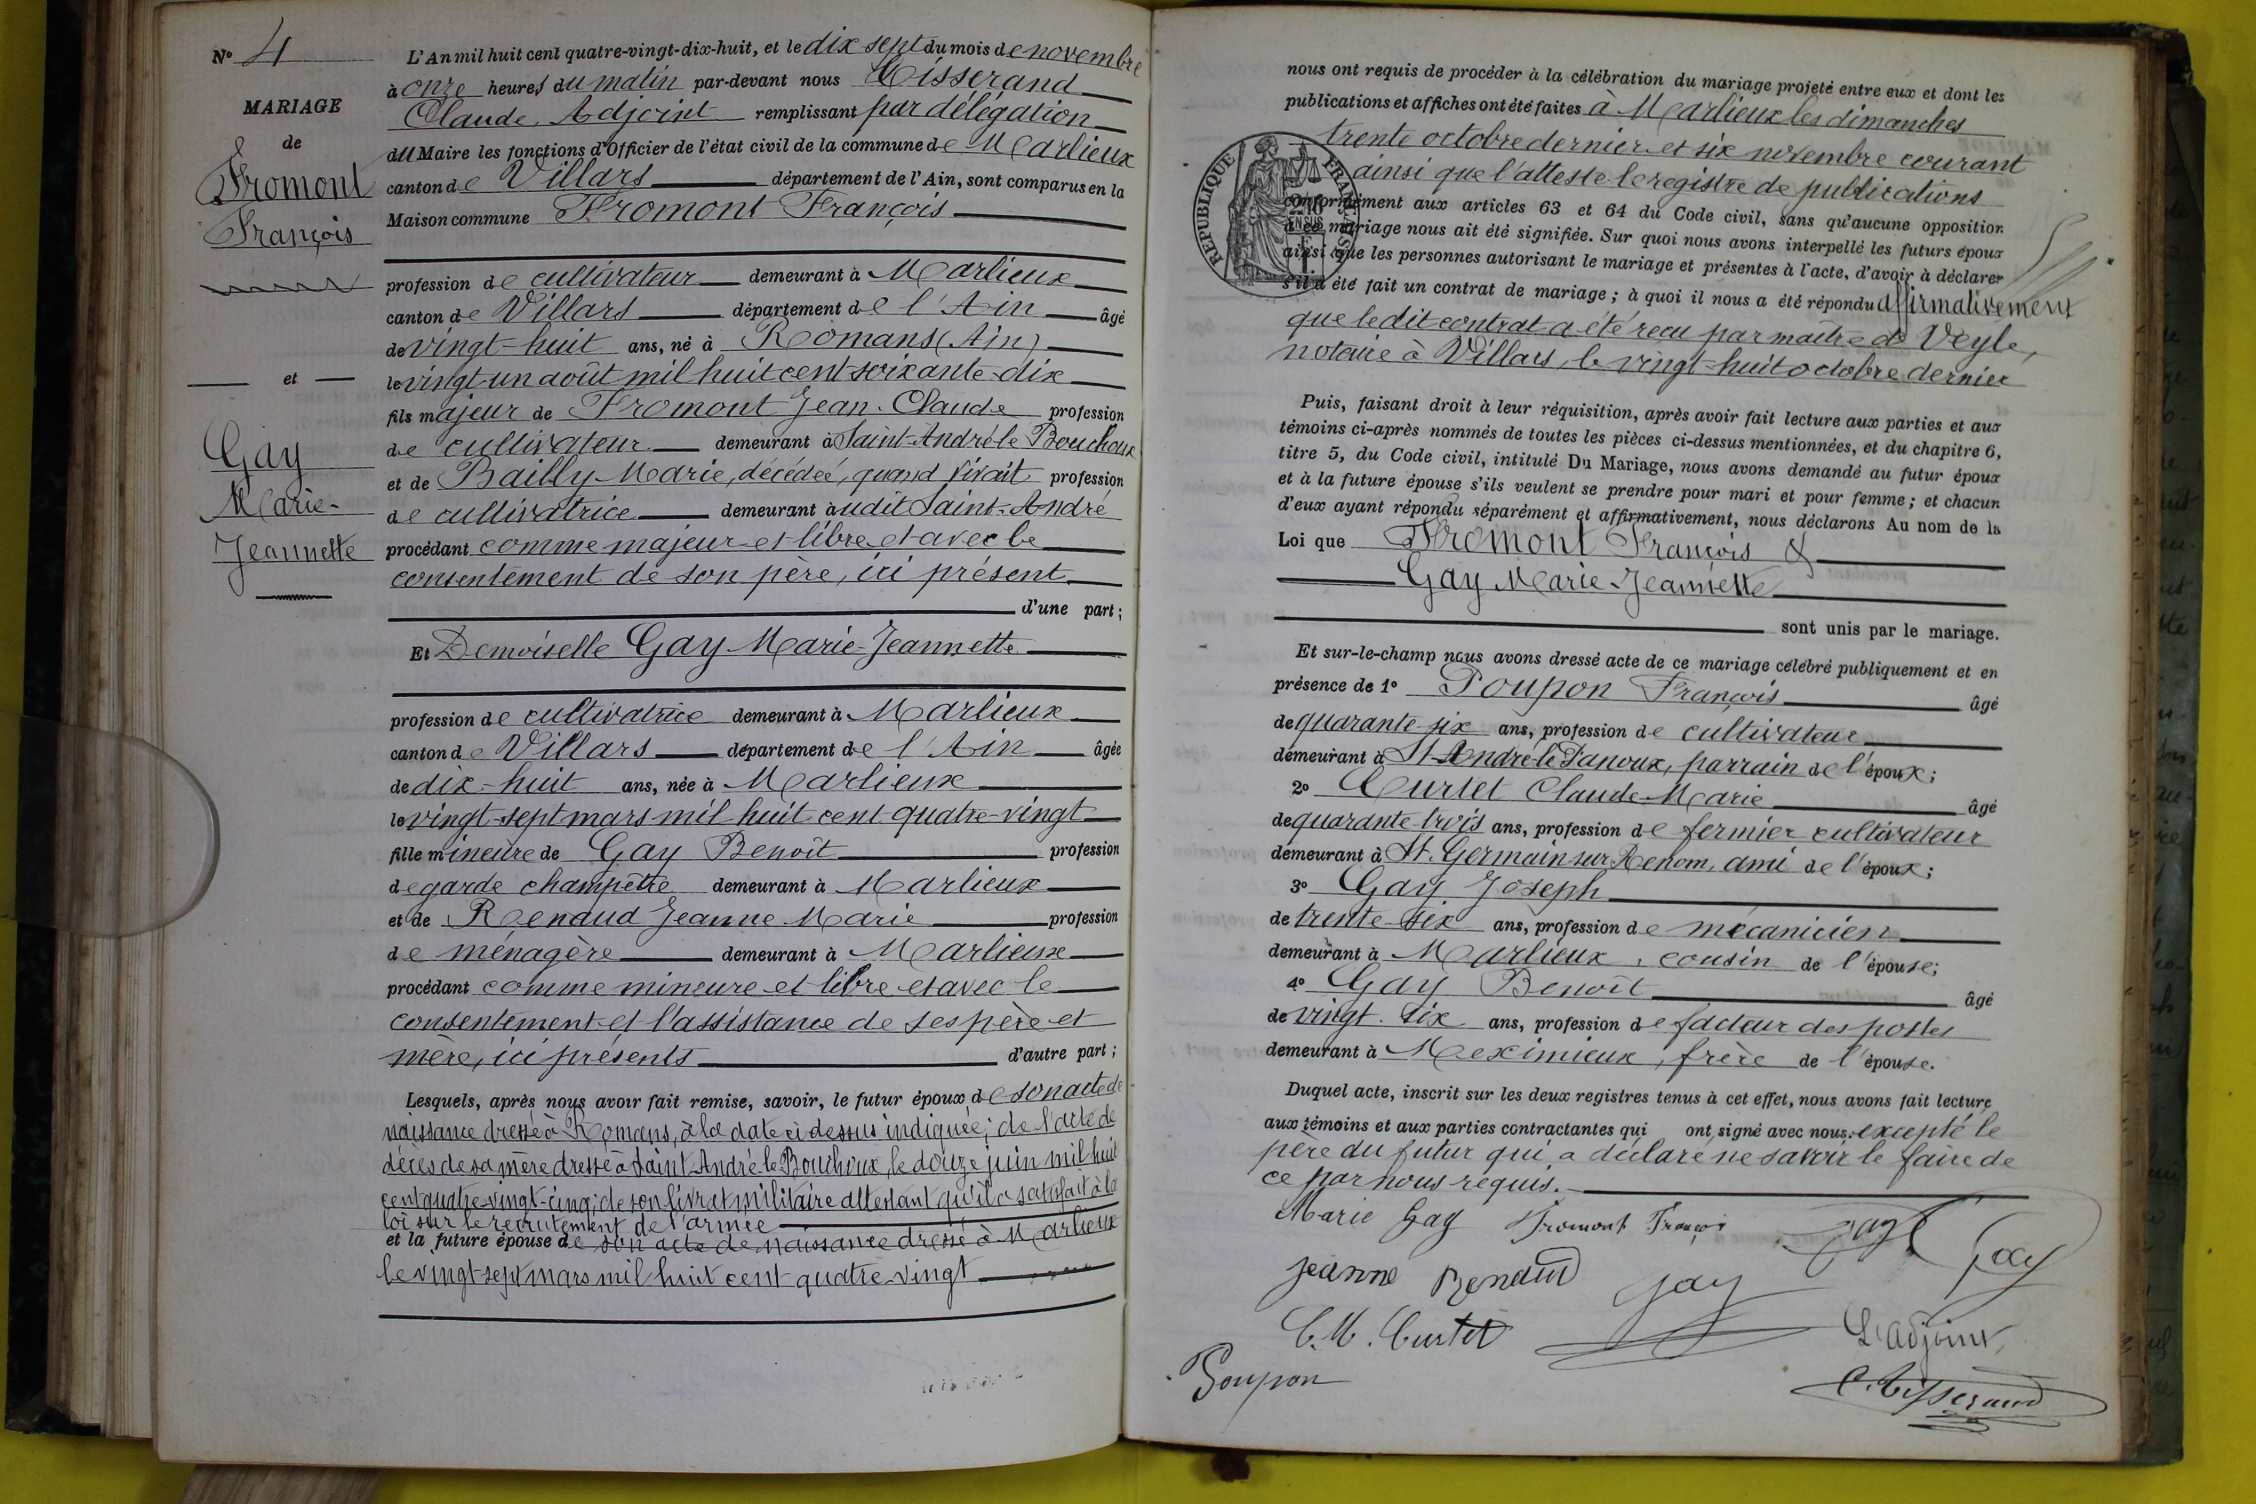 N° 4
MARIAGE
de
Fromont
François
et
Gay
Marie-
Jeannette
L'An mil huit cent quatre-vingt-dix-huit, et le dix sept du mois de novembre
à onze heures du matin par-devant nous Tisserand
Claude, Adjoint remplissant par délégation
du Maire les fonctions d'Officier de l'état civil de la commune de Marlieux
canton de Villars département de l'Ain, sont comparus en la
Maison commune Fromont François
profession de cultivateur demeurant à Marlieux
canton de Villars département de l'Ain âgé
de vingt-huit ans, né à Romans (Ain)
le vingt-un août mil huit cent soixante-dix
fils majeur de Fromont Jean-Claude profession
de cultivateur demeurant à Saint-André-le Bouchoux
et de Bailly Marie, décédée, quand vivait profession
de cultivatrice demeurant audit Saint-André
procédant comme majeur et libre et avec le
consentement de son père, ici présent
d'une part;
Et Demoiselle Gay Marie-Jeannette
profession de cultivatrice demeurant à Marlieux
canton de Villars département de l'Ain âgée
de dix-huit ans, née à Marlieux
le vingt-sept mars mil huit cent quatre-vingt
fille mineure de Gay Benoît profession
de garde champêtre demeurant à Marlieux
et de Renaud Jeanne Marie profession
de ménagère demeurant à Marlieux
procédant comme mineure et libre et avec le
consentement et l'assistance de ses père et
mère, ici présents d'autre part;
Lesquels, après nous avoir fait remise, savoir, le futur époux de son acte de
naissance dressé à Romans, à la date ci-dessus indiquée; de l'acte de
décès de sa mère dressé à Saint André-le Bouchoux, le douze juin mil huit
cent quatre-vingt-cinq; de son livret militaire attestant qu'il a satisfait à la
loi sur le recrutement de l'armée
et la future épouse de son acte de naissance dressé à Marlieux
le vingt sept mars mil huit cent quatre-vingt
nous ont requis de procéder à la célébration du mariage projeté entre eux et dont les
publications et affiches ont été faites à Marlieux les dimanches
trente octobre dernier et six novembre courant
ainsi que l'atteste le registre de publications
conformément aux articles 63 et 64 du Code civil, sans qu'aucune opposition
à ce mariage nous ait été signifiée. Sur quoi nous avons interpellé les futurs époux
ainsi que les personnes autorisant le mariage et présentes à l'acte, d'avoir à déclarer
s'il a été fait un contrat de mariage; à quoi il nous a été répondu affirmativement
que le dit contrat a été reçu par maître de Veyle,
notaire à Villars, le vingt-huit octobre dernier
REPUBLIQUE FRANÇAISE
Puis, faisant droit à leur réquisition, après avoir fait lecture aux parties et aux
témoins ci-après nommés de toutes les pièces ci-dessus mentionnées, et du chapitre 6,
titre 5, du Code civil, intitulé Du Mariage, nous avons demandé au futur époux
et à la future épouse s'ils veulent se prendre pour mari et pour femme; et chacun
d'eux ayant répondu séparément et affirmativement, nous déclarons Au nom de la
Loi que Fromont François &
Gay Marie-Jeannette
sont unis par le mariage.
Et sur-le-champ nous avons dressé acte de ce mariage célébré publiquement et en
présence de 1° Poupon François âgé
de quarante-six ans, profession de cultivateur
demeurant à St-André-le-Panoux, parrain de l'époux;
2° Curtet Claude-Marie âgé
de quarante-trois ans, profession de fermier cultivateur
demeurant à St. Germain sur Renom, ami de l'époux;
3° Gay Joseph
de trente-six ans, profession de mécanicien
demeurant à Marlieux, cousin de l'épouse;
4° Gay Benoît âgé
de vingt-six ans, profession de facteur des postes
demeurant à Meximieux, frère de l'épouse.
Duquel acte, inscrit sur les deux registres tenus à cet effet, nous avons fait lecture
aux témoins et aux parties contractantes qui ont signé avec nous, excepté le
père du futur qui a déclaré ne savoir le faire de
ce par nous requis.
Marie Gay Fromont François Gay Gay
Jeanne Renaud Gay
C. M. Curtet L'adjoint,
Poupon C. Tisserand